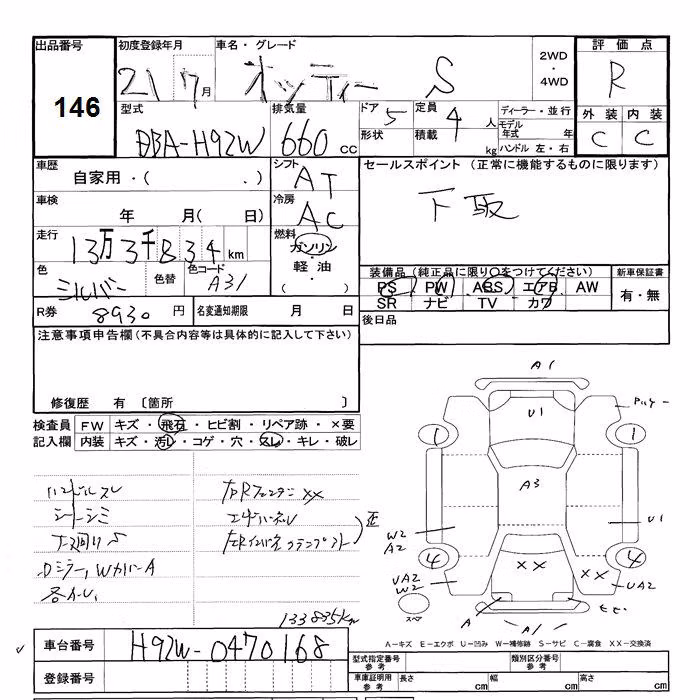 出品番号
146
初度登録年月
21 7月
車名・グレード
オッティー S
2WD
・
4WD
評価点
R
外装 内装
C C
型式
DBA-H92W
排気量
660 cc
ドア 5
形状
定員 4 人
積載 kg
ディーラー・並行
モデル年式 年
ハンドル 左・右
車歴
自家用・( . )
シフト
AT
車検
年 月( 日)
冷房
AC
走行
13万3千834 km
燃料
ガソリン
・
軽油
・
( )
色
シルバー
色替
色コード
A31
R券 8930 円
名変通知期限 月 日
セールスポイント (正常に機能するものに限ります)
下取
装備品 (純正品に限り○をつけてください)
PS PW ABS エアB AW
SR ナビ TV カワ
新車保証書
有・無
後日品
注意事項申告欄(不具合内容等は具体的に記入して下さい)
修復歴 有 〔箇所 〕
検査員 FW キズ・飛石・ヒビ割・リペア跡・×要
記入欄 内装 キズ・汚レ・コゲ・穴・スレ・キレ・破レ
ハンドルスレ
シートシミ
Dミラー,WカバーA
各A・U,
左Rフェンダー XX
エンドパネル
133835km
A1
U1
A3
1
1
U1
W2
A2
4
4
UA2
W2
XX
XX
UA2
A
A
A1
スペア
A－キズ E－エクボ U－凹み W－補修跡 S－サビ C－腐食 XX－交換済
車台番号 H92W-0470168
登録番号
型式指定番号 参考
類別区分番号 参考
車庫証明用 参考
長さ cm
幅 cm
高さ cm